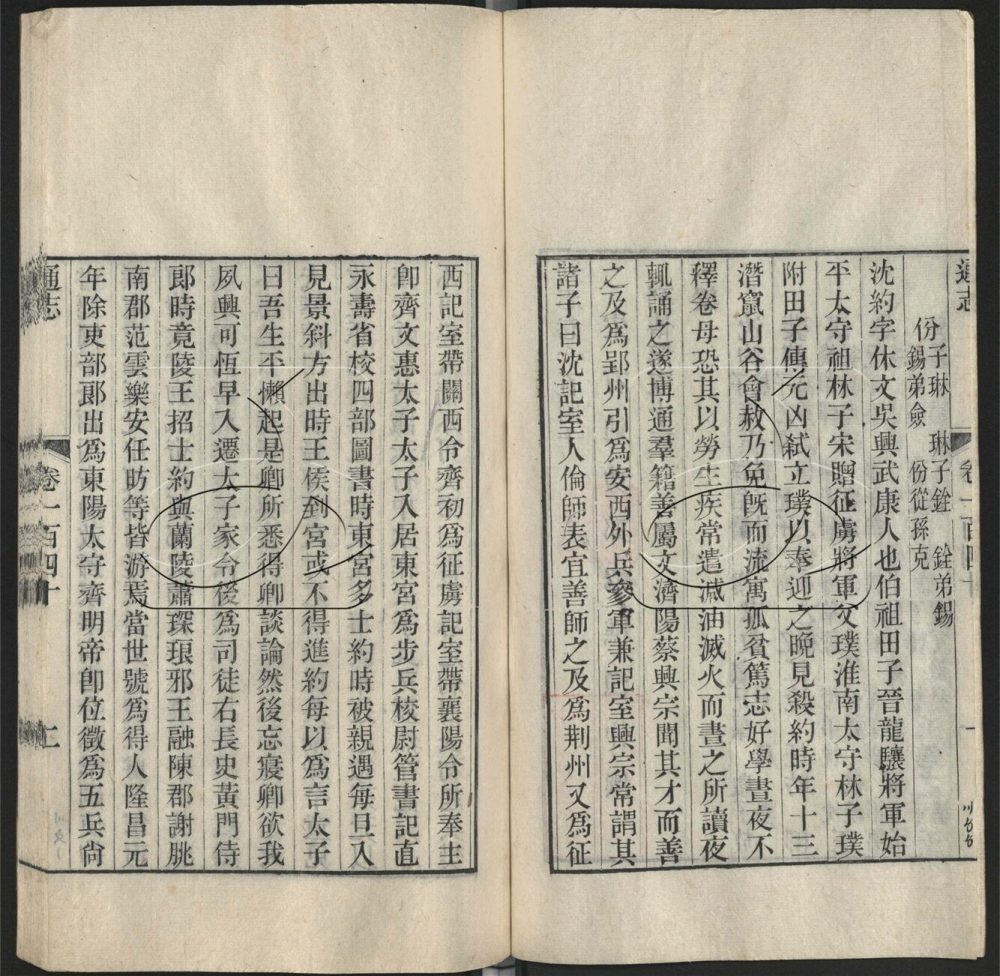 通志
卷一百四十
一
份子琳　琳子銓　銓弟錫
錫弟僉　份從孫克
沈約字休文吳興武康人也伯祖田子晉龍驤將軍始
平太守祖林子宋贈征虜將軍父璞淮南太守林子璞
附田子傳元凶弒立璞以奉迎之晚見殺約時年十三
潛竄山谷會赦乃免旣而流寓孤貧篤志好學晝夜不
釋卷母恐其以勞生疾常遣減油滅火而晝之所讀夜
輒誦之遂博通羣籍善屬文濟陽蔡興宗聞其才而善
之及爲郢州引爲安西外兵參軍兼記室興宗常謂其
諸子曰沈記室人倫師表宜善師之及爲荆州又爲征
西記室帶關西令齊初爲征虜記室帶襄陽令所奉主
卽齊文惠太子太子入居東宮爲步兵校尉管書記直
永壽省校四部圖書時東宮多士約時被親遇每旦入
見景斜方出時王侯到宮或不得進約每以爲言太子
曰吾生平懶起是卿所悉得卿談論然後忘寢卿欲我
夙興可恆早入遷太子家令後爲司徒右長史黃門侍
郞時竟陵王招士約與蘭陵蕭琛琅邪王融陳郡謝朓
南郡范雲樂安任昉等皆游焉當世號爲得人隆昌元
年除吏部郞出爲東陽太守齊明帝卽位徵爲五兵尙
通志
卷一百四十